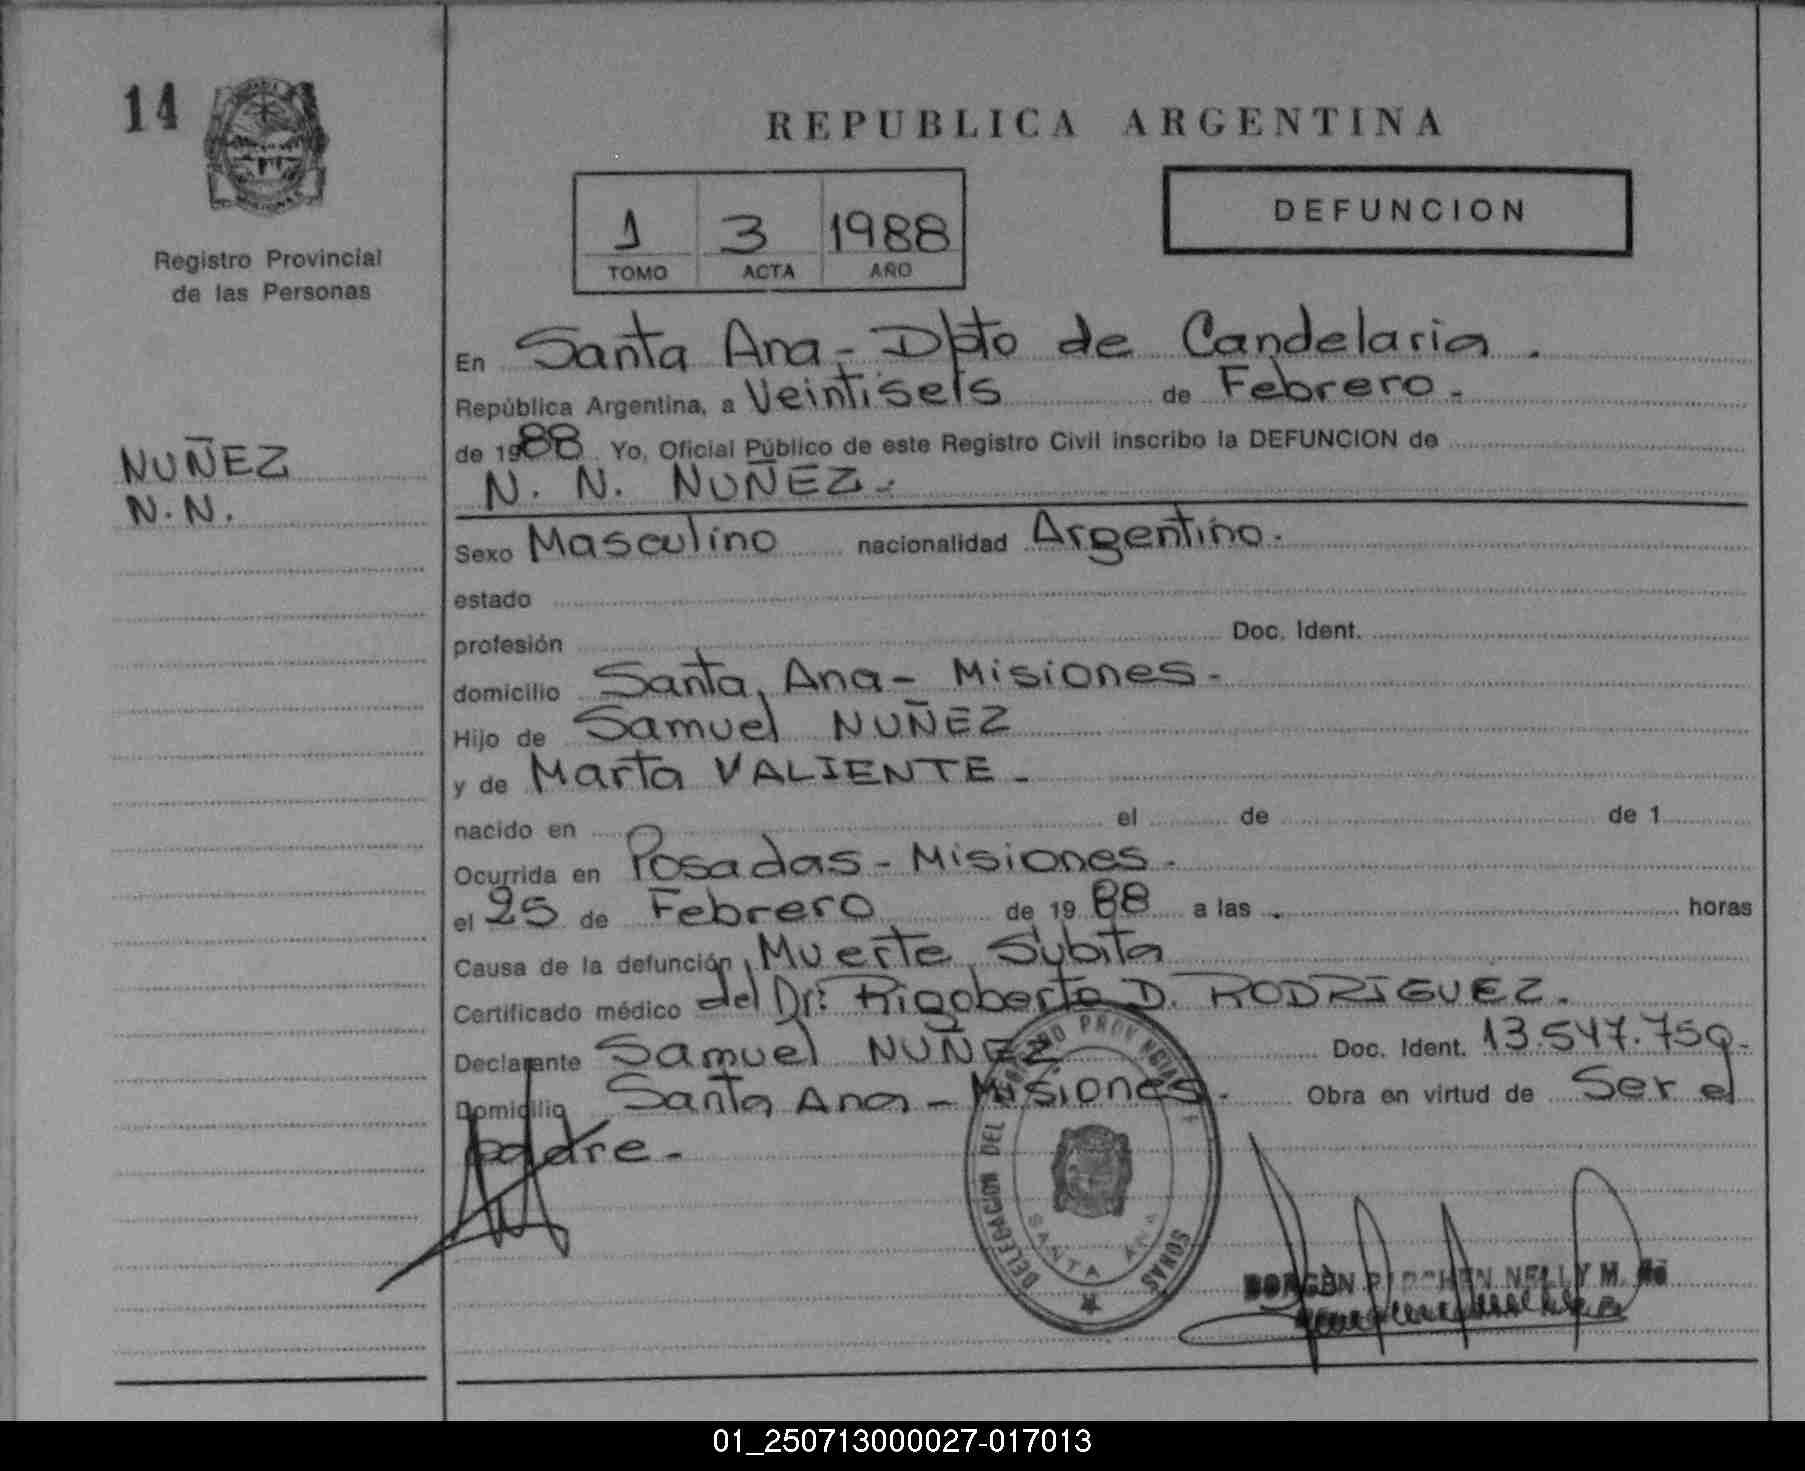 14
REPUBLICA ARGENTINA
1 3 1988
TOMO ACTA AÑO
DEFUNCION
Registro Provincial
de las Personas
NUÑEZ
N.N.
En Santa Ana - Dpto de Candelaria.
República Argentina, a Veintiseis de Febrero.-
de 1988 Yo, Oficial Público de este Registro Civil inscribo la DEFUNCION de
N. N. NUÑEZ.-
Sexo Masculino nacionalidad Argentino.-
estado
profesión Doc. Ident.
domicilio Santa Ana - Misiones -
Hijo de Samuel NUÑEZ
y de Marta VALIENTE -
nacido en el de de 1
Ocurrida en Posadas - Misiones -
el 25 de Febrero de 1988 a las . horas
Causa de la defunción Muerte Súbita
Certificado médico del Dr: Rigoberto D. RODRIGUEZ.
Declarante Samuel NUÑEZ Doc. Ident. 13.547.759-
Domicilio Santa Ana - Misiones. Obra en virtud de Ser el
padre.-
DELEGACION DEL SONAS
SANTA ANA
NELLY M.
01_250713000027-017013